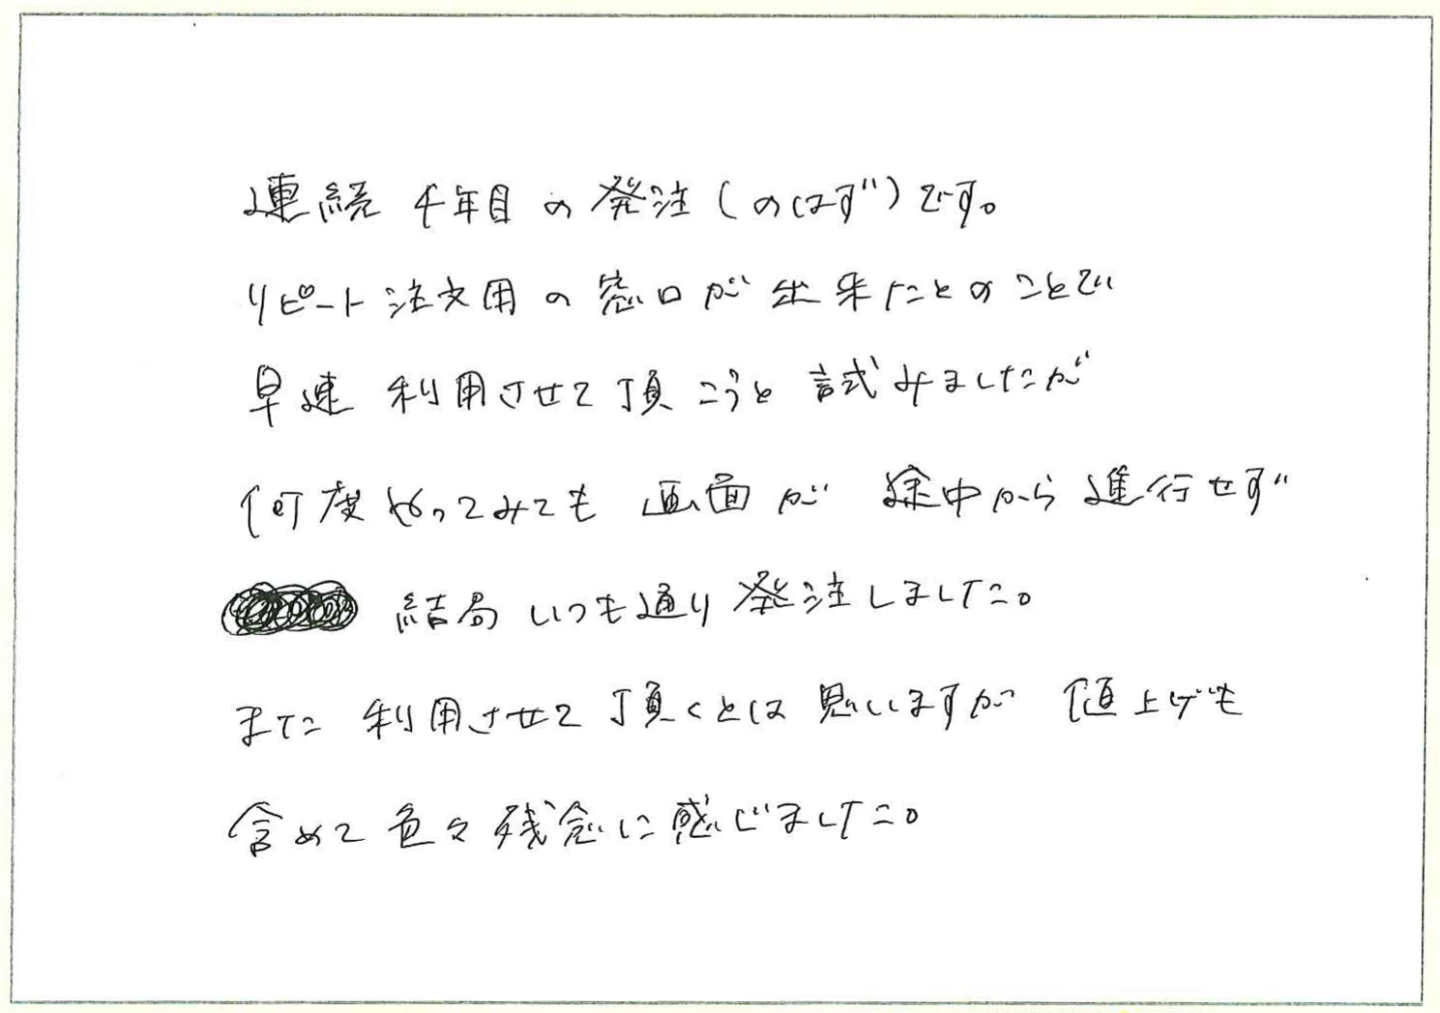 連続4年目の発注(のはず)です。
リピート注文用の窓口が出来たとのことで
早速利用させて頂こうと試みましたが
何度やってみても画面が途中から進行せず
結局いつも通り発注しました。
また利用させて頂くとは思いますが値上げも
含めて色々残念に感じました。